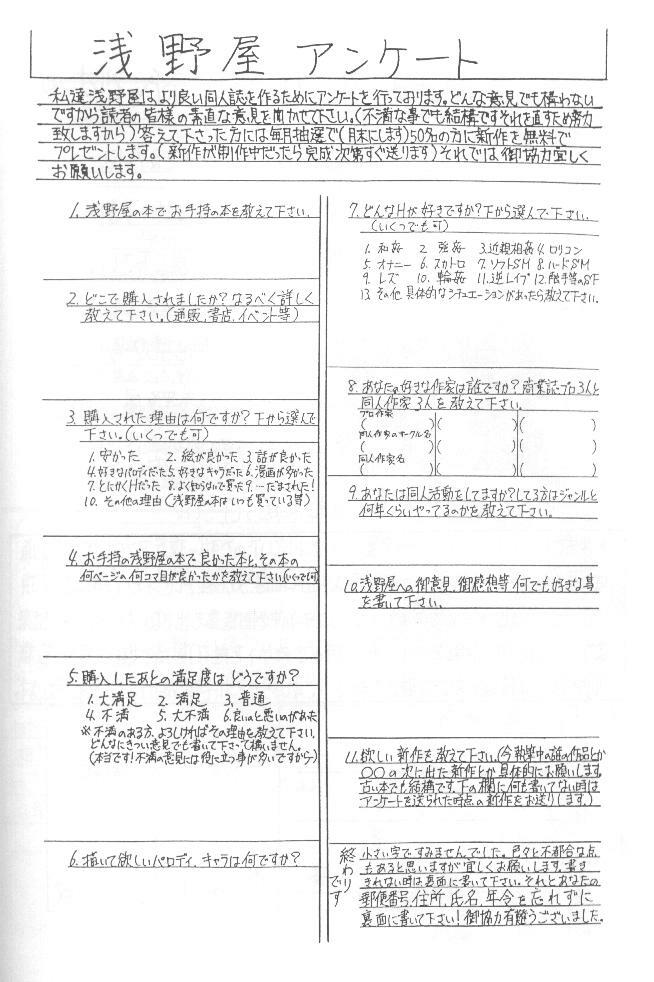 浅野屋 アンケート
私達浅野屋は、より良い同人誌を作るためにアンケートを行っております。どんな意見でも構わない
ですから読者の皆様の素直な意見を聞かせて下さい。(不満な事でも結構ですそれを直すため努力
致しますから)答えて下さった方には毎月抽選で(月末にします)50名の方に新作を無料で
プレゼントします。(新作が制作中だったら完成次第すぐ送ります)それでは、御協力宜しく
お願いします。
1. 浅野屋の本でお手持の本を教えて下さい。
2. どこで購入されましたか?なるべく詳しく
教えて下さい。(通販、書店、イベント等)
3. 購入された理由は何ですか?下から選んで
下さい。(いくつでも可)
1. 安かった 2. 絵が良かった 3. 話が良かった
4. 好きなパロディだった 5. 好きなキャラだった 6. 漫画が多かった
7. とにかくHだった 8. よく知らないで買った 9. …だまされた!
10. その他の理由(浅野屋の本はいつも買っている等)
4. お手持の浅野屋の本で良かった本と、その本の
何ページの何コマ目が良かったかを教えて下さい(いくつでも可)
5. 購入したあとの満足度はどうですか?
1. 大満足 2. 満足 3. 普通
4. 不満 5. 大不満 6. 良いのと悪いのがあった
※不満のある方、よろしければその理由を教えて下さい。
どんなにきつい意見でも書いて下さって構いません。
(本当です!不満の意見には役に立つ事が多いですから)
6. 描いて欲しいパロディ、キャラは何ですか?
7. どんなHが好きですか?下から選んで下さい。
(いくつでも可)
1. 和姦 2. 強姦 3. 近親相姦 4. ロリコン
5. オナニー 6. スカトロ 7. ソフトSM 8. ハードSM
9. レズ 10. 輪姦 11. 逆レイプ 12. 触手等のSF
13. その他 具体的なシチュエーションがあったら教えて下さい。
8. あなたの好きな作家は誰ですか?商業誌プロ3人と
同人作家3人を教えて下さい。
プロ作家
( )( )( )
同人作家のサークル名
( )( )( )
同人作家名
( )( )( )
9. あなたは同人活動をしてますか?してる方はジャンルと
何年くらいやってるのかを教えて下さい。
10. 浅野屋への御意見、御感想等、何でも好きな事
を書いて下さい。
11. 欲しい新作を教えて下さい。(今執筆中の話の作品とか
〇〇の次に出た新作とか具体的にお願いします。
古い本でも結構です。下の欄に何も書いてない時は
アンケートを送られた時点の新作をお送りします。)
終わりです
小さい字ですみませんでした。色々と不都合な点
もあると思いますが宜しくお願いします。書き
きれない時は裏面に書いて下さい。それとあなたの
郵便番号、住所、氏名、年令を忘れずに
裏面に書いて下さい!御協力有難うございました。